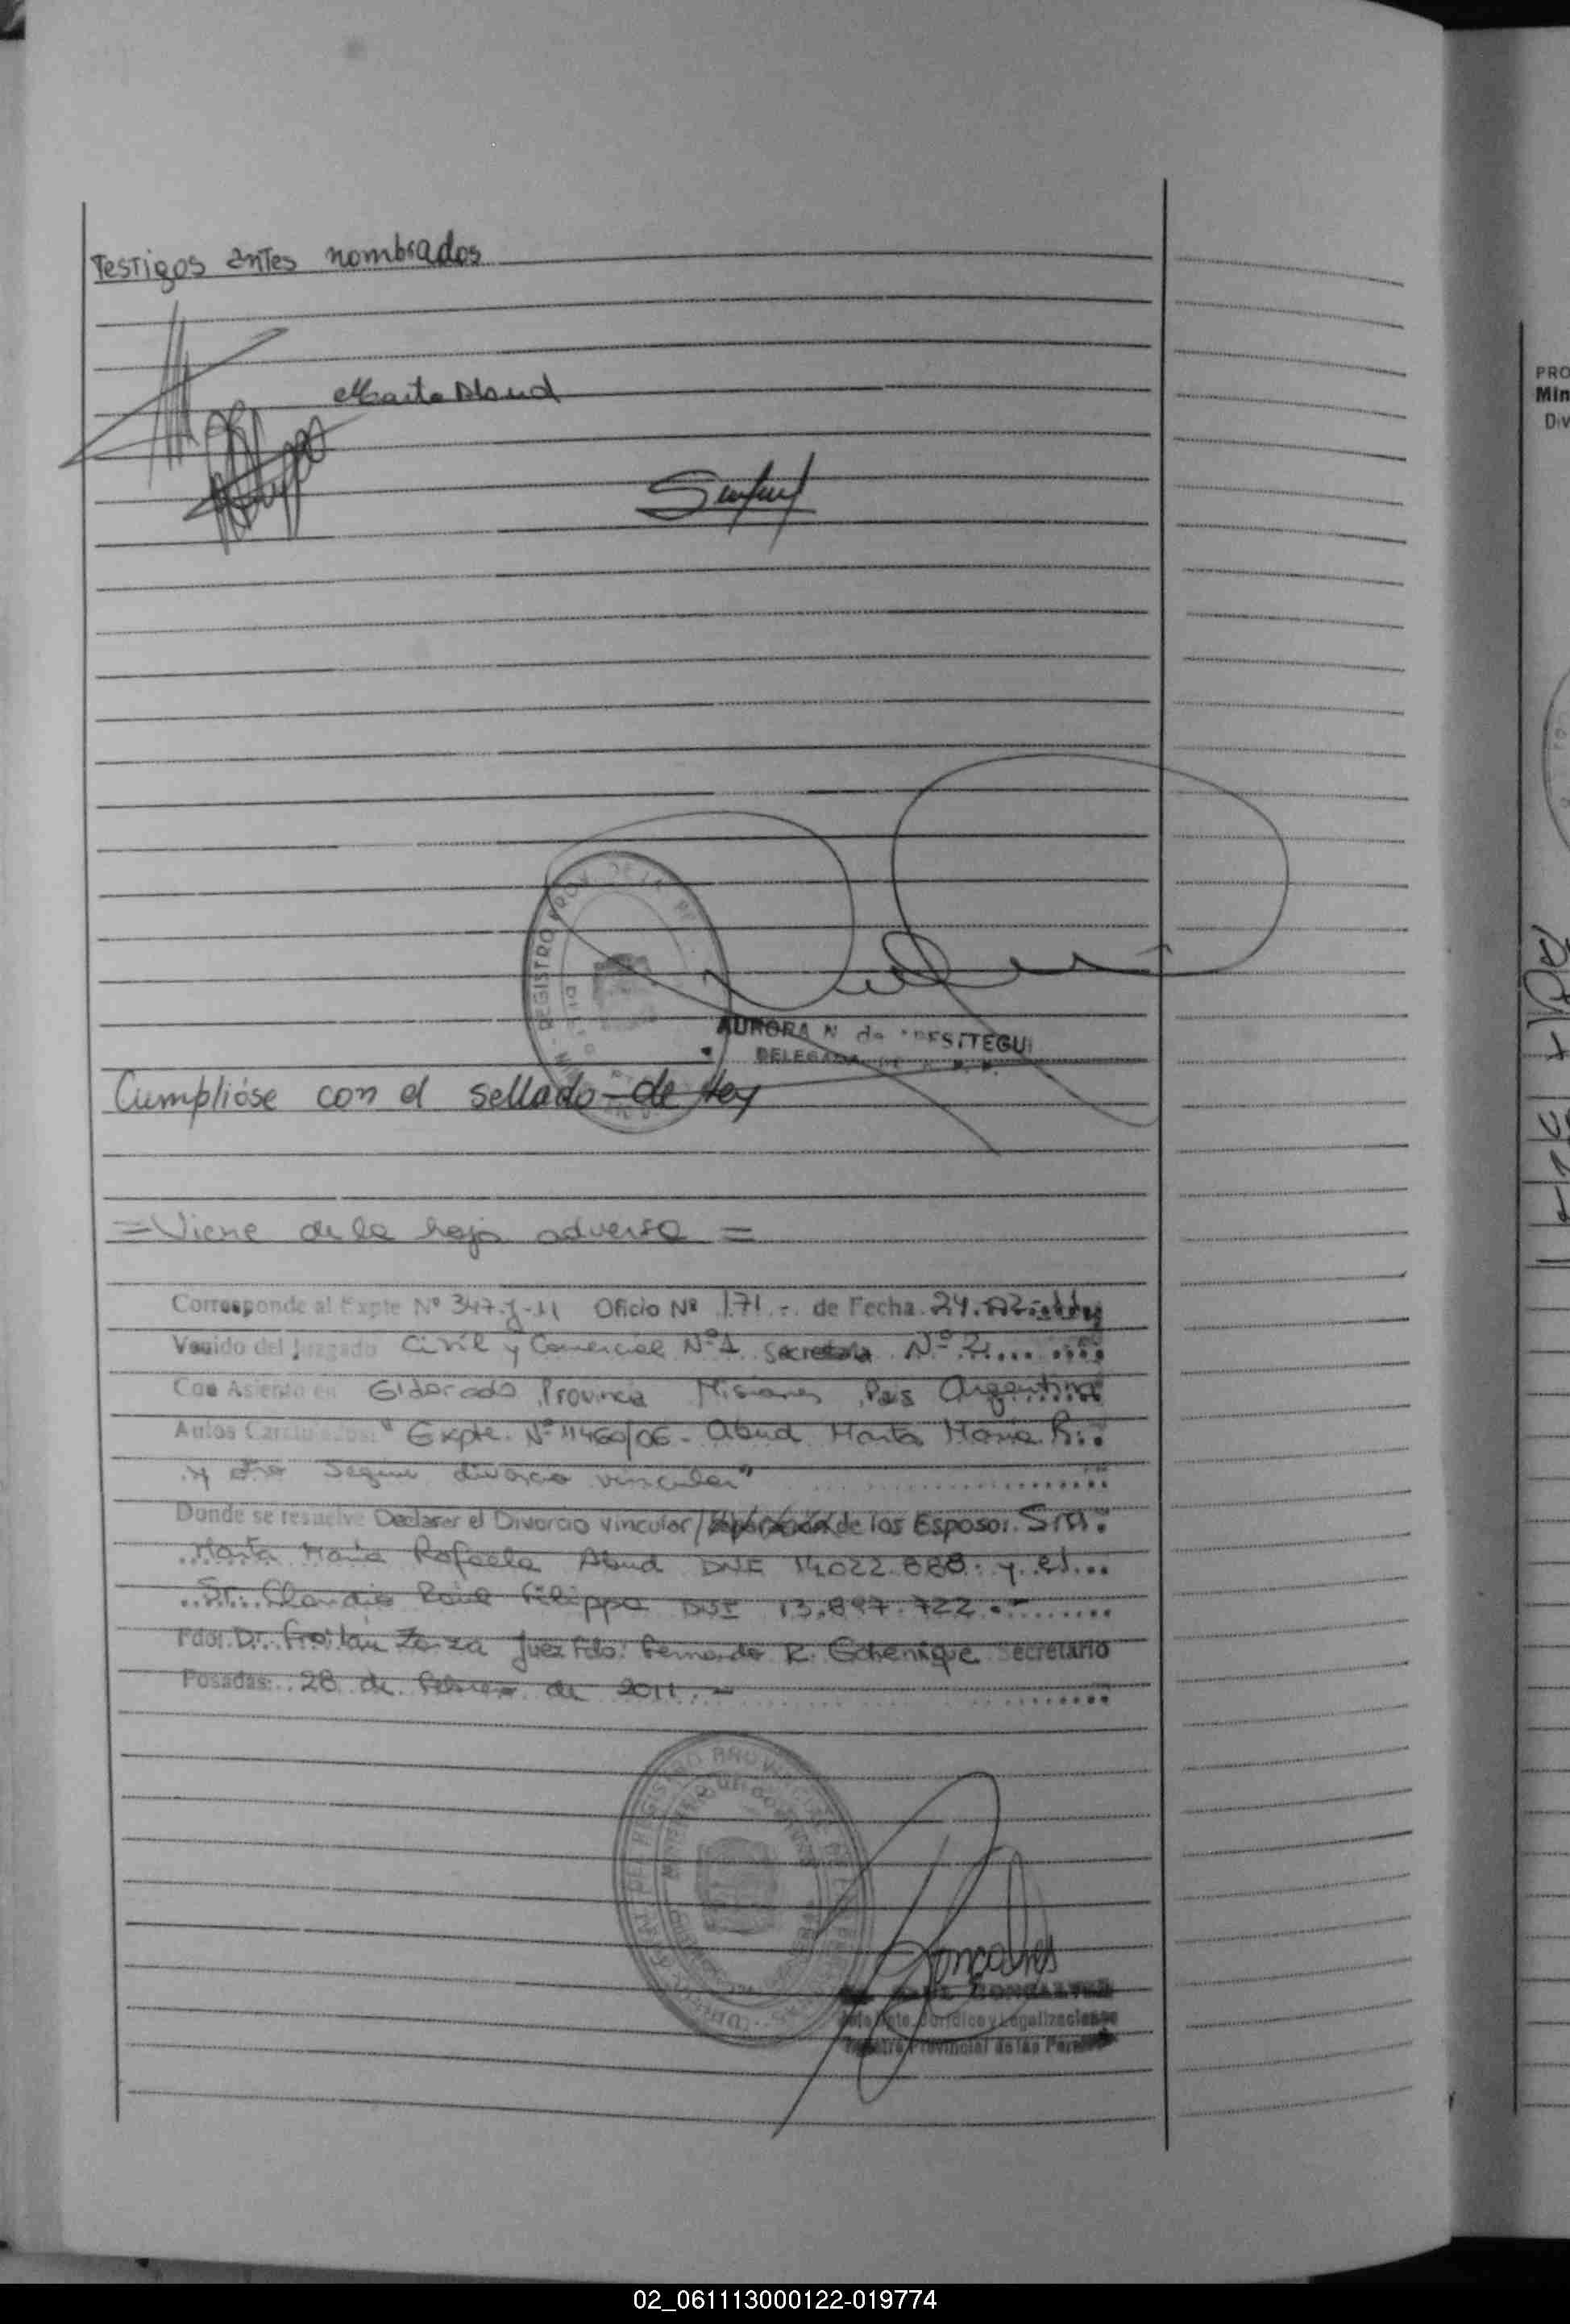 Testigos antes nombrados
Marta Abud
REGISTRO PROV. DE LA
AURORA N. de
DELEGADA
Cumplióse con el sellado de ley
= Viene de la hoja adversa =
Corresponde al Expte Nº 347-J-11 Oficio Nº 171.- de Fecha 24.02.
Venido del Juzgado Civil y Comercial Nº 1 Secretaria Nº 2
Con Asiento en Eldorado Provincia Misiones Pais Argentina
Autos Caratulados: "Expte. Nº 11460/06 - Abud Marta María R.
y otro Seguin divorcio vincular"
Donde se resuelve Declarar el Divorcio vincular/Separación de los Esposos. Sra.
Marta María Rafaela Abud DNI 14.022.888. y el
Sr. Claudio Raúl Filippa DNI 13.897.722.-
Fdo. Dr. Froilán Zarza Juez Fdo: Fernando R. Echenique Secretario
Posadas: 28 de Febrero de 2011.-
Goncalves
GONCALVES
Jefe Dpto. Jurídico y Legalizaciones
Registro Provincial de las Personas
PRO
Min
Div
02_061113000122-019774